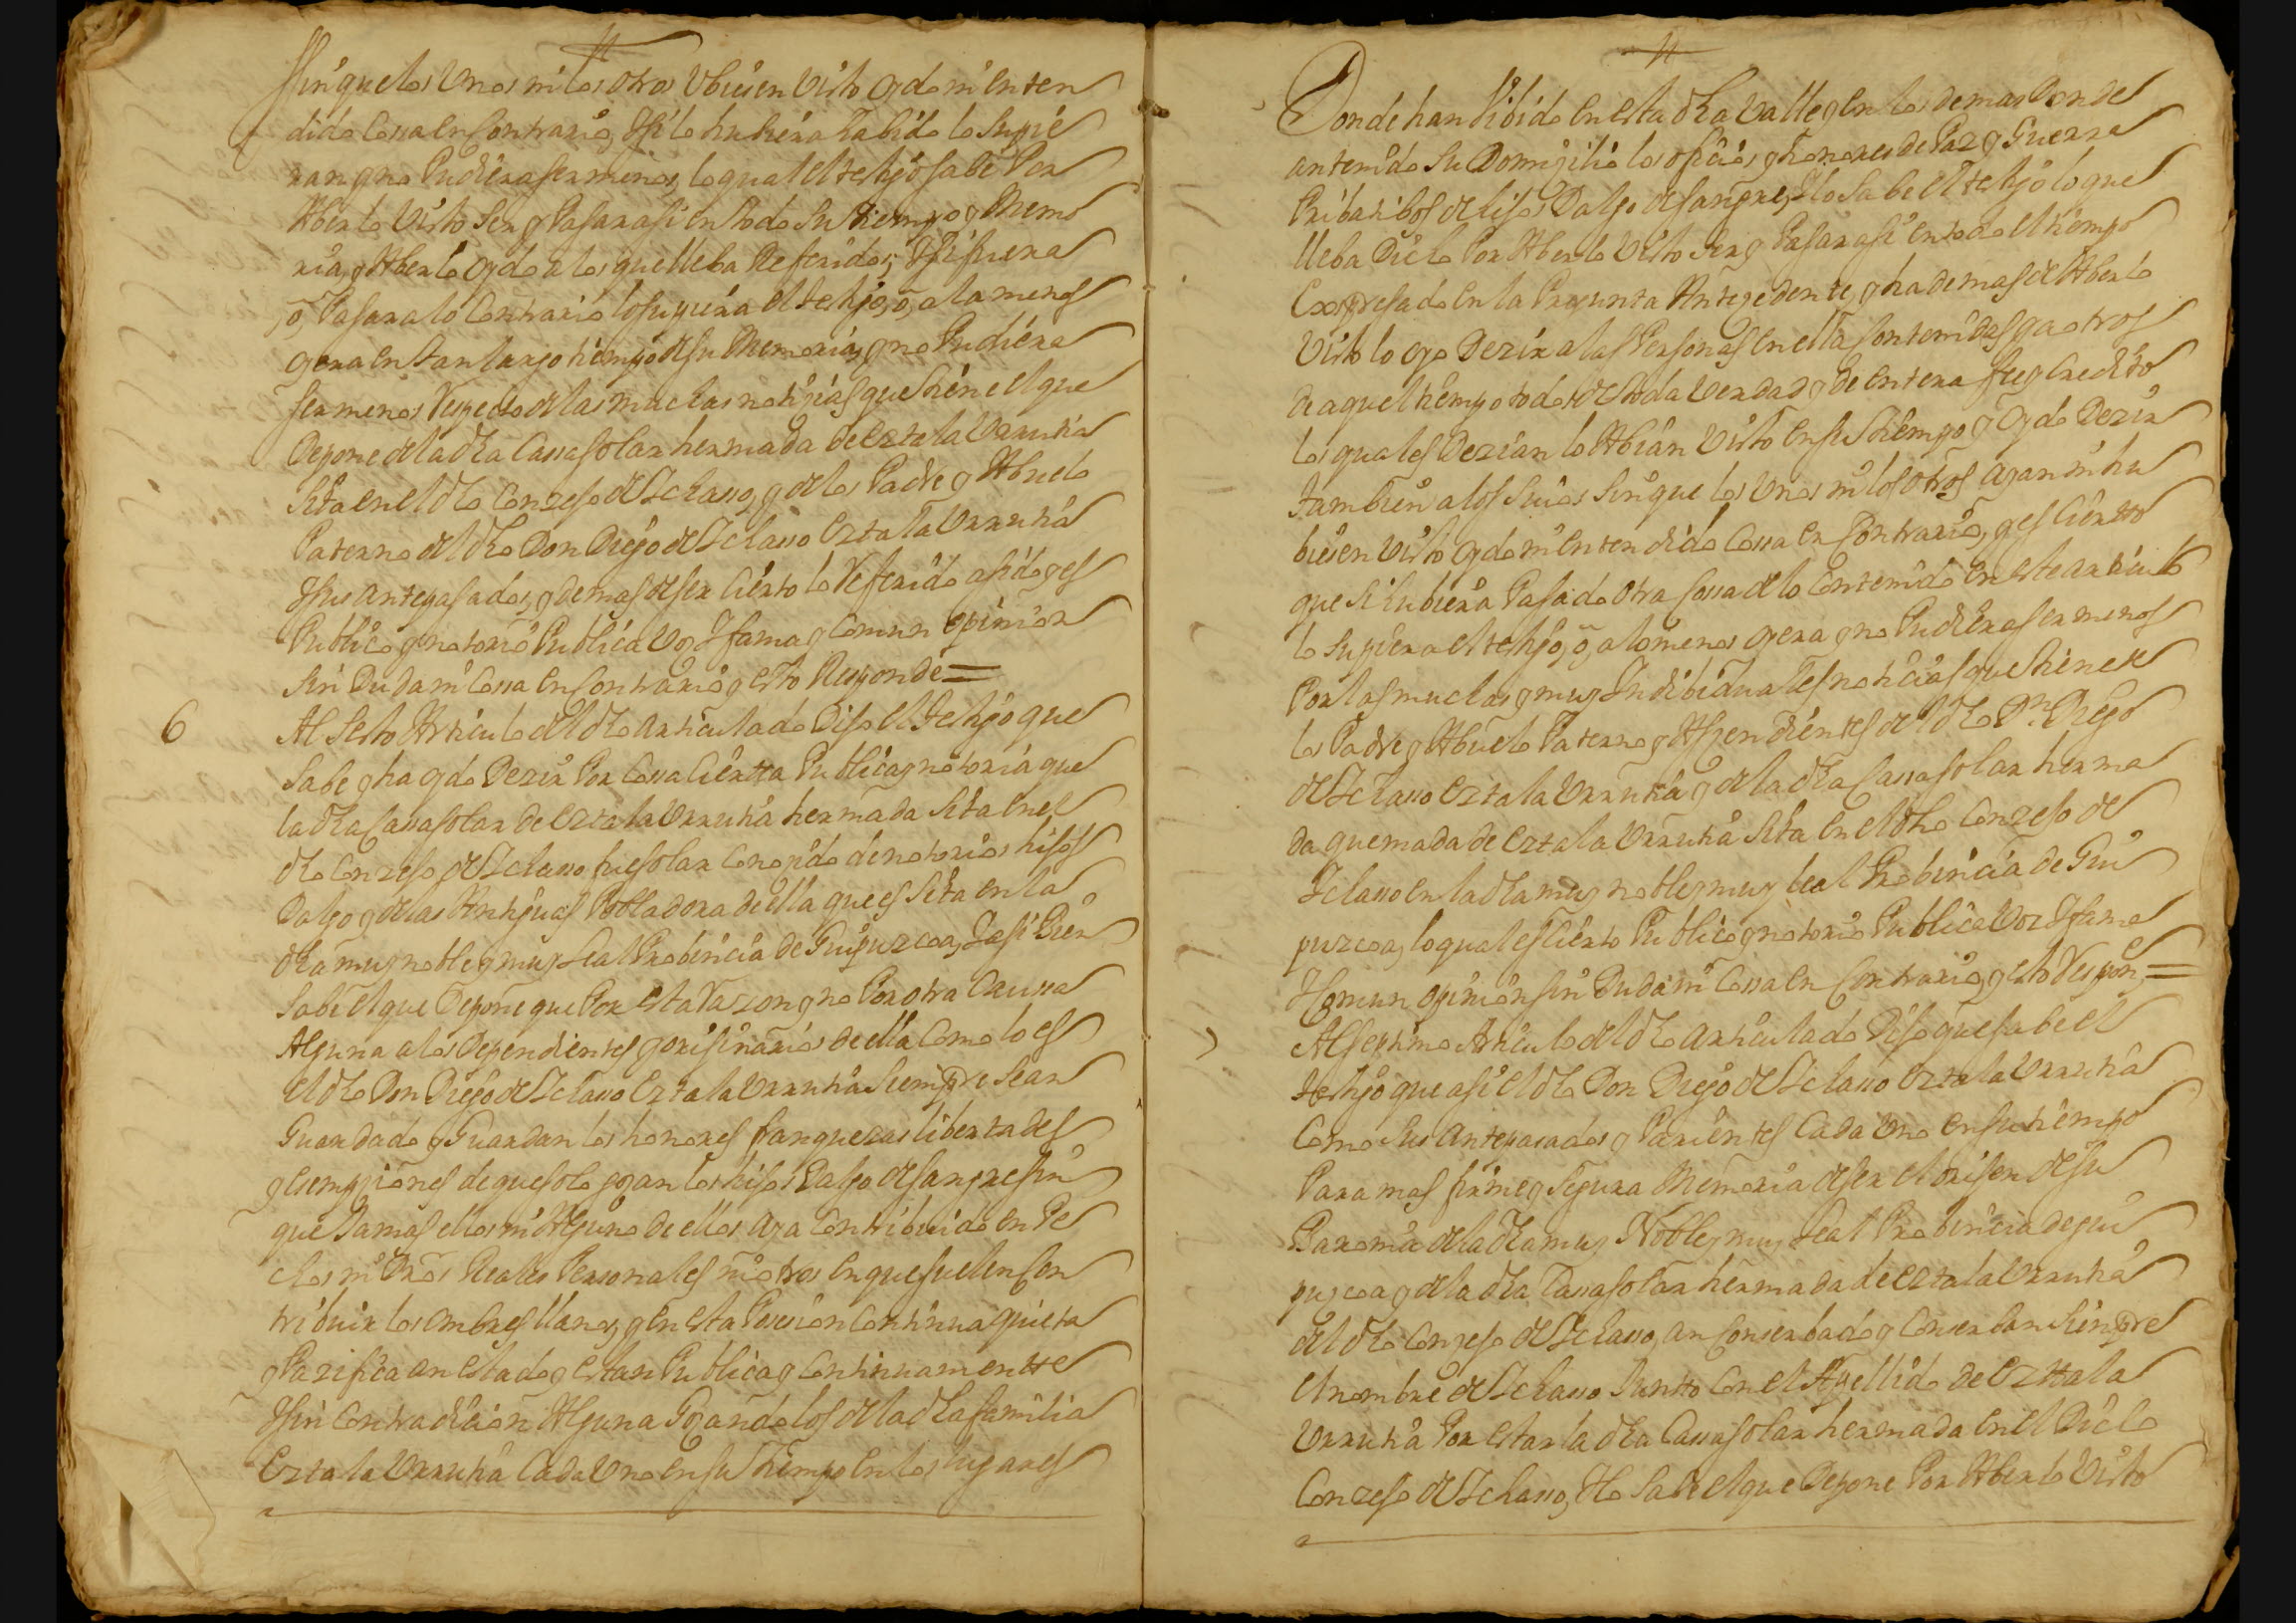 Sin que los Unos ni los otros Vbiesen Visto oydo ni enten
dido Cossa en Contrario, Y si lo hubiera habido lo Supie
ran y no Pudiera ser menos, lo qual el testigo sabe Por
Aberlo Visto Ser y Pasar asi en todo su tiempo y Memo
ria, y Aberlo oydo a los que lleba Referidos, Y si fuera
o, Pasara lo Contrario lo supiera el testigo, o, a lo menos
oyera en tan largo tiempo de su Memoria, y no Pudiera
ser menos Respecto de las muchas notiçias que tiene el que
Depone de la dha Cassa solar hermada de Eztala Vrrutia
Sita en el dho Conzejo de Ichasso, y de los Padre y Abuelo
Paterno del dho Don Diego de Ichasso Eztala Vrrutia
Y sus antepasados, y demas de ser Cierto lo Referido asido y es
Publico y notorio Publica Voz Y fama y Comun opinion
Sin Duda ni Cossa en Contrario y esto Responde =
6 Al Sesto Articulo del dho articulado Dijo el testigo que
Sabe y ha oydo Dezir Por Cossa Cierta Publica y notoria que
la dha Cassa solar de Eztala Vrrutia hermada Sita en el
dho Conzejo de Ichasso fue solar Conoçido de notorios hijos
Dalgo y de las Antiguas Pobladora de ella que es Sita en la
dha muy noble y muy Leal Probincia de Guipuzcoa, Y asi Bien
Sabe el que Depone que Por esta Razon y no Por otra Caussa
Alguna a los Dependientes y orijinarios de ella Como lo es
el dho Don Diego de Ichasso Eztala Vrrutia Siempre Se an
Guardado y Guardan los honores franquezas libertades
y esempçiones de que solo gozan los hijos Dalgo de Sangre sin
que Jamas ellos ni Alguno de ellos aya Contribuido en Pe
chos ni Dros Reales Personales ni otros en que suelen Con
tribuir los ombres llanos, y en esta Posesion Continua quieta
y Pazifica an estado y estan Publica y Continuamentte
Y sin Contradicion Alguna Gozando los de la dha familia
Eztala Vrrutia Cada Uno en su tiempo en los lugares
Donde han Vibido en esta dha Valle y en los demas Donde
an tenido Su Domiçilio los ofiçios y honores de Paz y Guerra
Pribatibos de hijos Dalgo de sangre, Y lo Sabe el testigo lo que
lleba Dicho Por Aberlo Visto Ser y Pasar asi en todo el tiempo
Expresado en la Pregunta Antezedente, y ha demas de Aberlo
Visto lo oyo Dezir a las Personas en ella Contenidas y a otros
de aquel tiempo todos de toda Verdad y de entera fee y Credito
los quales Dezian lo Abian Visto en su tiempo y oydo Dezir
tambien a los Suios Sin que los Unos ni los otros ayan ni hu
biesen Visto oydo ni entendido Cossa en Contrario, y es Cierto
que Si hubiera Pasado otra Cossa de lo Contenido en este articulo
lo Supiera el testigo, o, a lo menos oyera y no Pudiera ser menos
Por las muchas y muy Indibiduales notiçias que tiene de
los Padre y Abuelo Paterno y Asçendientes del dho Dn Diego
de Ichasso Eztala Vrrutia y de la dha Cassa solar herma
da quemada de Eztala Vrrutia Sita en el dho Conzejo de
Ichasso en la dha muy noble y muy leal Probincia de Gui
puzcoa, lo qual es Cierto Publico y notorio Publica Voz Y fama
Y Comun opinion sin Duda ni Cossa en Contrario, y esto Respon. =
7 Al septimo Articulo del dho articulado Dijo que sabe el
testigo que asi el dho Don Diego de Ichasso Eztala Vrrutia
Como Sus antepasados y Parientes Cada Uno en su tiempo
Para mas firme y Segura Memoria de ser el orijen de su
Baronia de la dha muy Noble y muy Leal Probincia de gui
puzcoa y de la dha Cassa solar hermada de Eztala Vrrutia
del dho Conzejo de Ichasso, an Conserbado y Conserban Siempre
el nombre de Ichasso Junto Con el Apellido de Eztala
Vrrutia Por estar la dha Cassa solar hermada en el Dicho
Conzejo de Ichasso, Y lo Sabe el que Depone Por Aberlo Visto